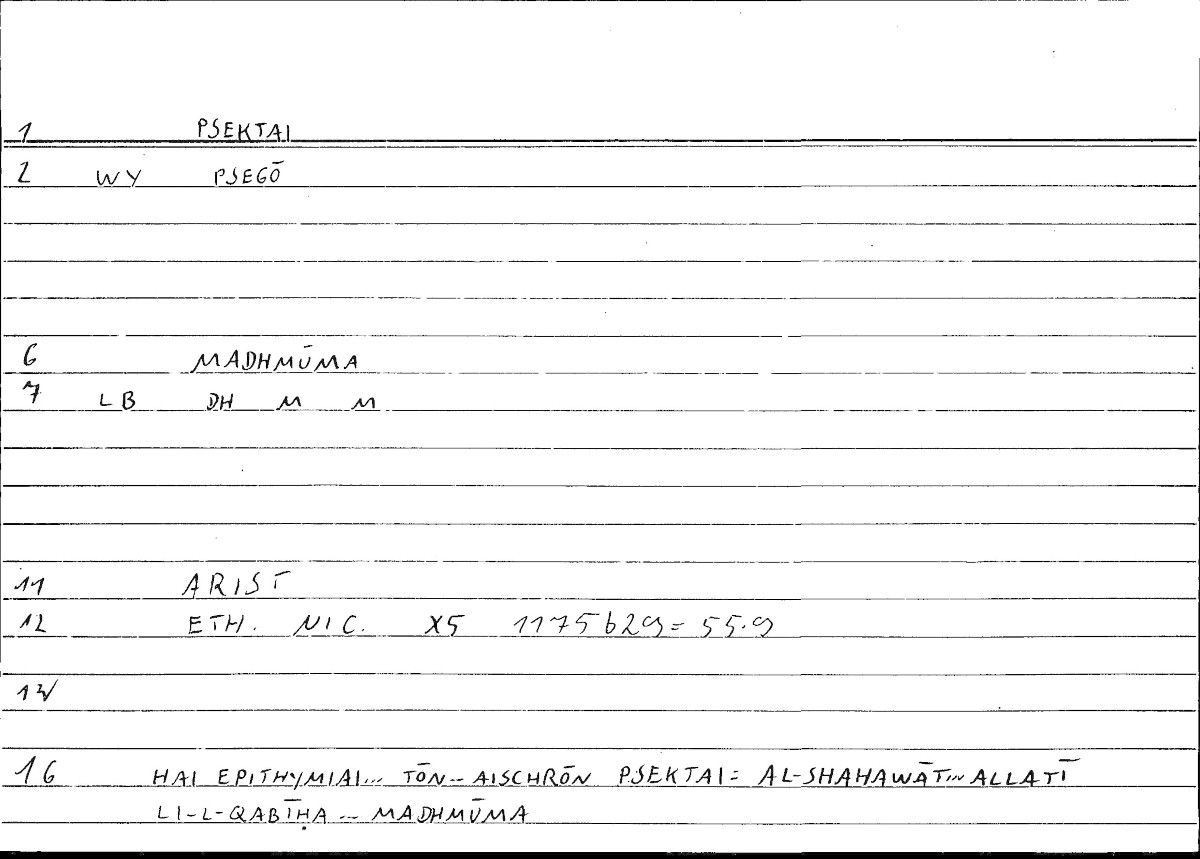 1 PSEKTAI
2 WY PSEGŌ
6 MADHMŪMA
7 LB DH M M
11 ARIST
12 ETH. NIC. X5 1175b29= 55.9
16 HAI EPITHYMIAI... TŌN... AISCHRŌN PSEKTAI= AL-SHAHAWĀT... ALLATĪ
LI-L-QABĪḤA... MADHMŪMA